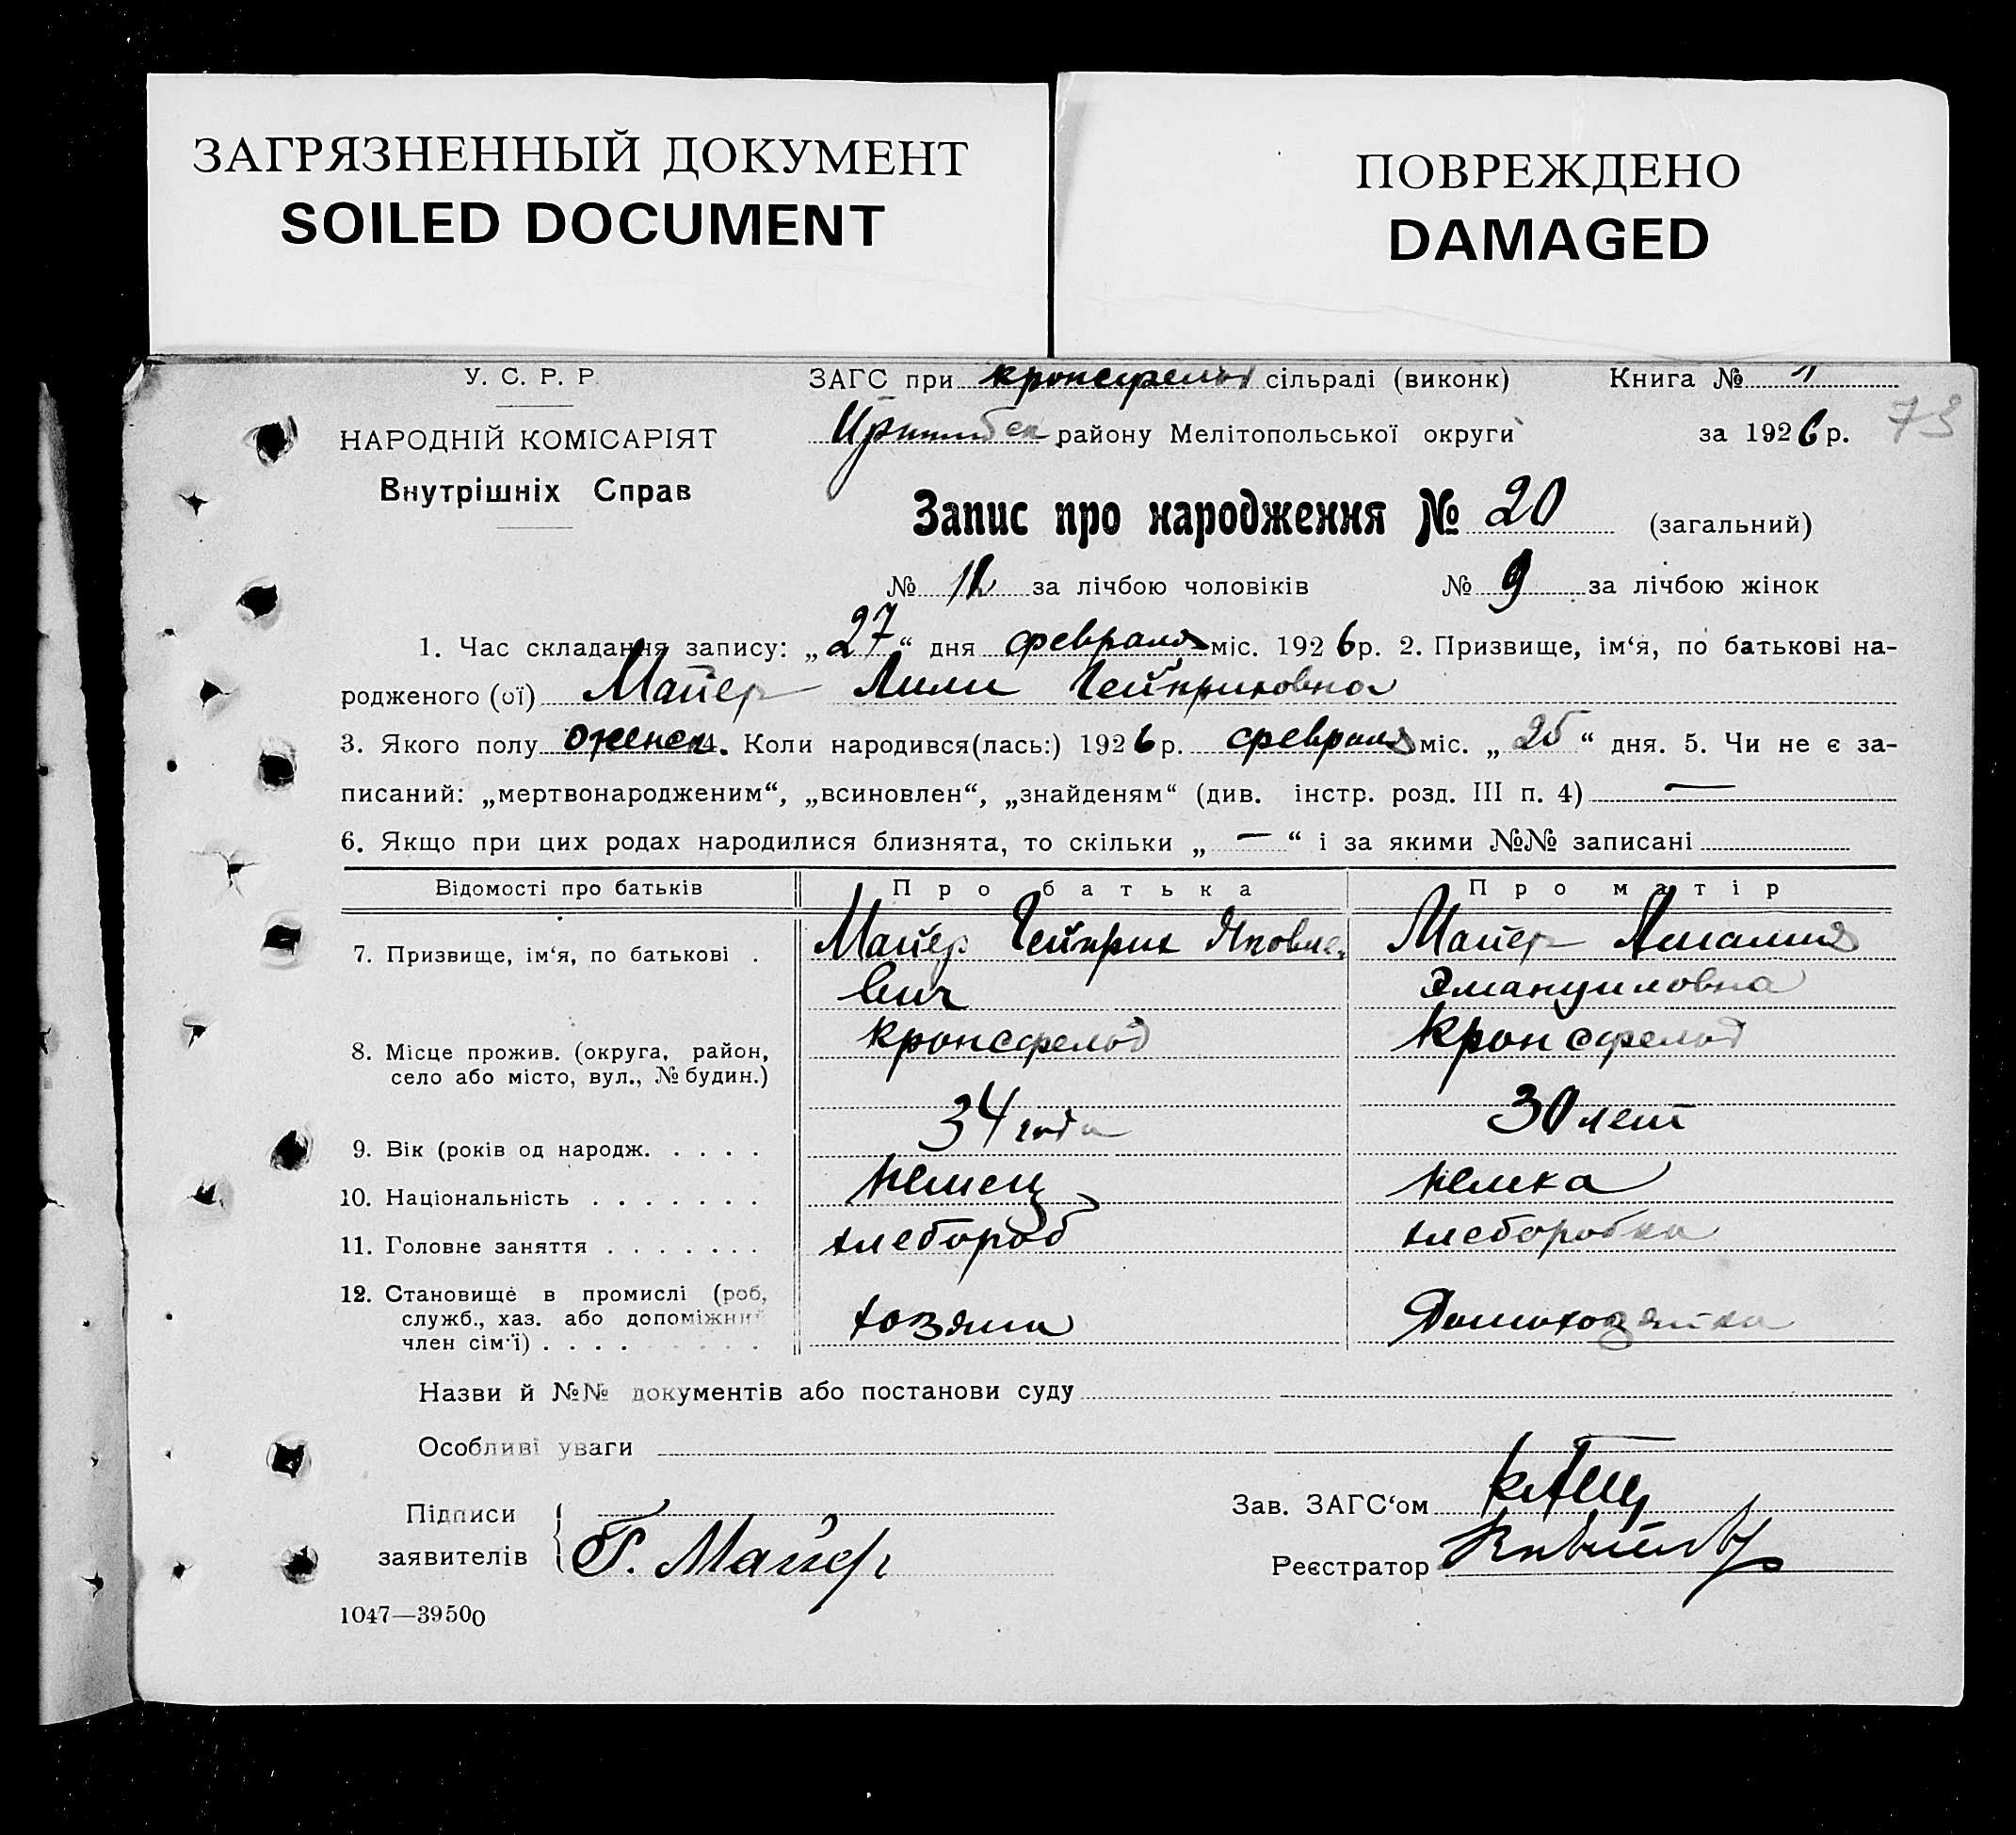 ЗАГРЯЗНЕННЫЙ ДОКУМЕНТ
SOILED DOCUMENT
ПОВРЕЖДЕНО
DAMAGED
У. С. Р. Р.
НАРОДНІЙ КОМІСАРІЯТ
Внутрішніх Справ
ЗАГС при кронсфельд сільраді (виконк) Книга № 1
району Мелітопольської округи за 1926 р. 73
Запис про народження № 20 (загальний)
№ за лічбою чоловіків № 9 за лічбою жінок
1. Час складання запису: „27“ дня февраля міс. 1926 р. 2. Призвище, ім‘я, по батькові на-
родженого (ої) Майер Лили Гейнриховна
3. Якого полу женск 4. Коли народився(лась:) 1926 р. февраля міс. „25“ дня. 5. Чи не є за-
писаний: „мертвонародженим“, „всиновлен“, „знайденям“ (див. інстр. розд. III п. 4) —
6. Якщо при цих родах народилися близнята, то скільки „ — “ і за якими №№ записані
Відомості про батьків Про батька Про матір
7. Призвище, ім‘я, по батькові . Майер Гейнрих Яковле- Майер Амалия
вич Эмануиловна
8. Місце прожив. (округа, район, кронсфельд кронсфельд
село або місто, вул., № будин.)
9. Вік (років од народж. . . . . 34 года 30 лет
10. Національність . . . . . . . немец немка
11. Головне заняття . . . . . . . хлебороб хлеборобка
12. Становищė в промислі (роб, хозяин Домохозяйка
служб., хаз. або допоміжний
член сім‘ї) . . . .
Назви й №№ документів або постанови суду
Особливі уваги
Підписи
заявителів Г. Майер
Зав. ЗАГС‘ом
Реєстратор
1047—39500